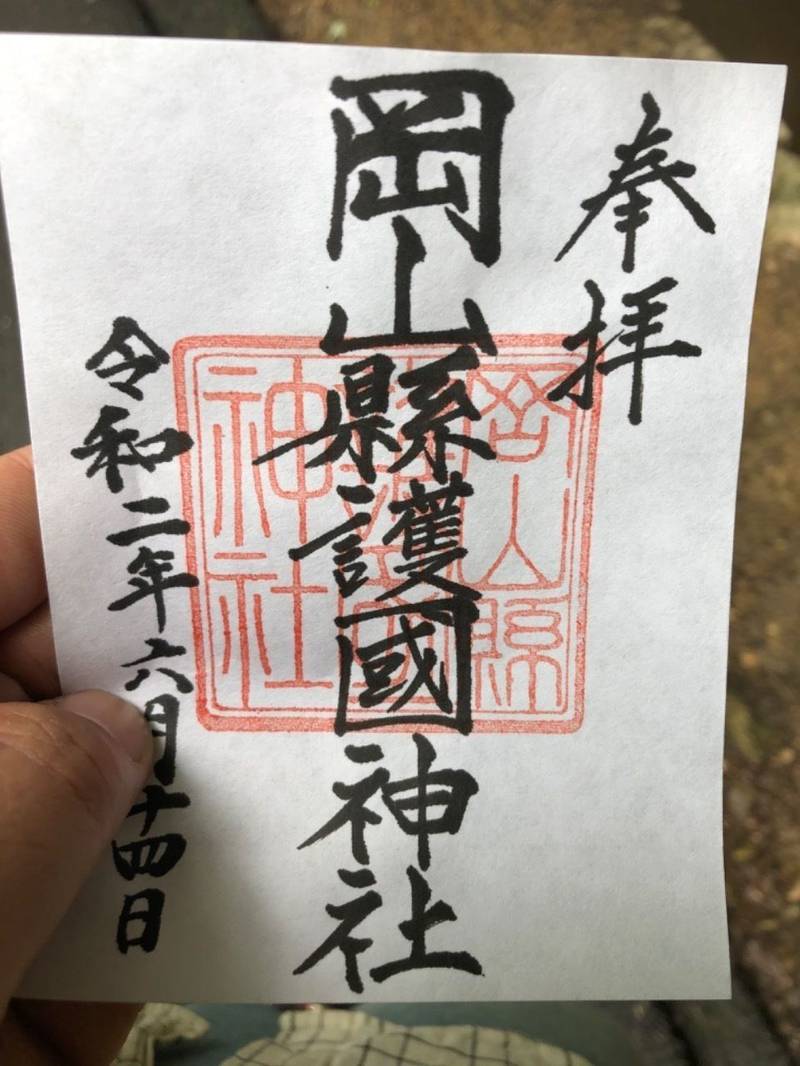 奉拝
岡山縣護國神社
岡山縣護國神社
令和二年六月十四日